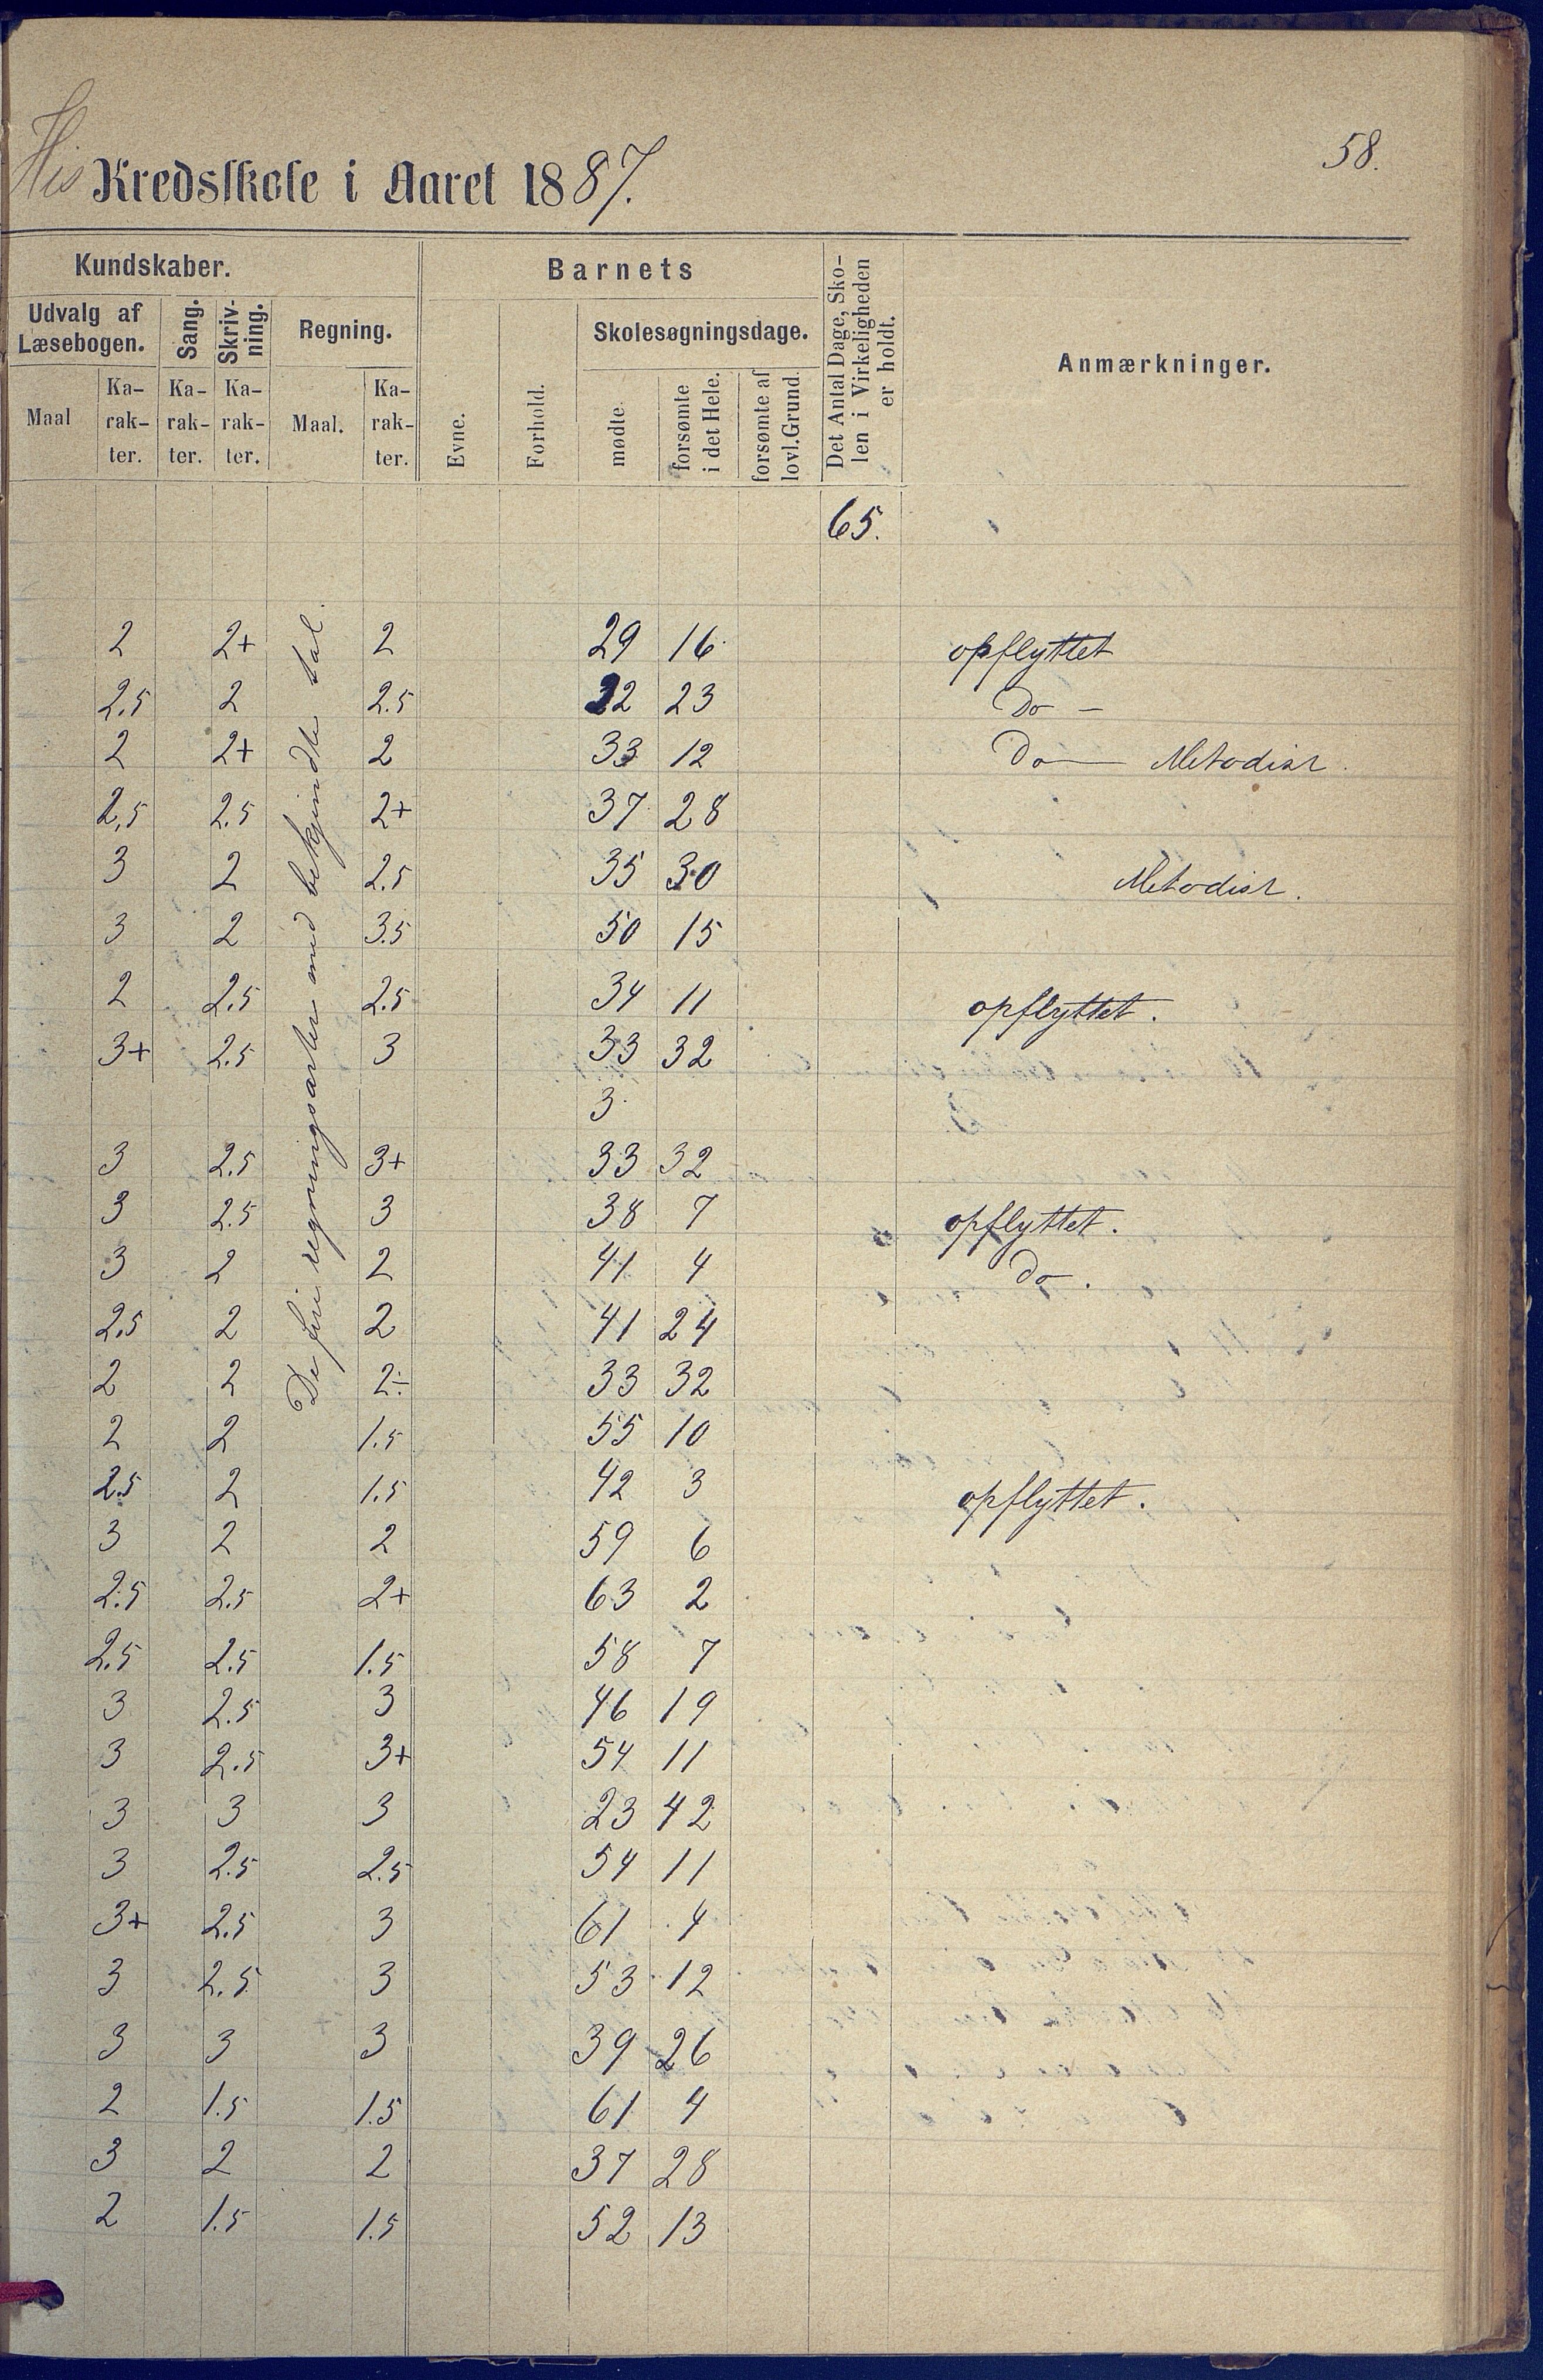 58.
His Kredsskole i Aaret 1887.
Kundskaber. Barnets Det Antal Dage, Sko-len i Virkeligheden er holdt. Anmærkninger.
Udvalg af Læsebogen. Sang. Skriv-ning. Regning. Evne. Forhold. Skolesøgningsdage.
Maal Ka-rak-ter. Ka-rak-ter. Ka-rak-ter. Maal. Ka-rak-ter. mødte forsømte i det Hele. forsømte af lovl. Grund.
65.
De fire regningsarter med bekjendte tal.
2 2+ 2 29 16 opflyttet
2.5 2 2.5 22 23 Do -
2 2+ 2 33 12 Do — Metodist.
2,5 2.5 2+ 37 28
3 2 2.5 35 30 Metodist.
3 2 3.5 50 15
2 2.5 2.5 34 11 opflyttet.
3+ 2.5 3 33 32
3
3 2.5 3+ 33 32
3 2.5 3 38 7 opflyttet.
3 2 2 41 4 Do.
2.5 2 2 41 24
2 2 2÷ 33 32
2 2 1.5 55 10
2.5 2 1.5 42 3 opflyttet.
3 2 2 59 6
2.5 2.5 2+ 63 2
2.5 2.5 1.5 58 7
3 2.5 3 46 19
3 2.5 3+ 54 11
3 3 3 23 42
3 2.5 2.5 54 11
3+ 2.5 3 61 4
3 2.5 3 53 12
3 3 3 39 26
2 1.5 1.5 61 4
3 2 2 37 28
2 1.5 1.5 52 13